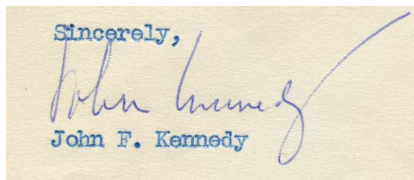 Sincerely,
John Kennedy
John F. Kennedy